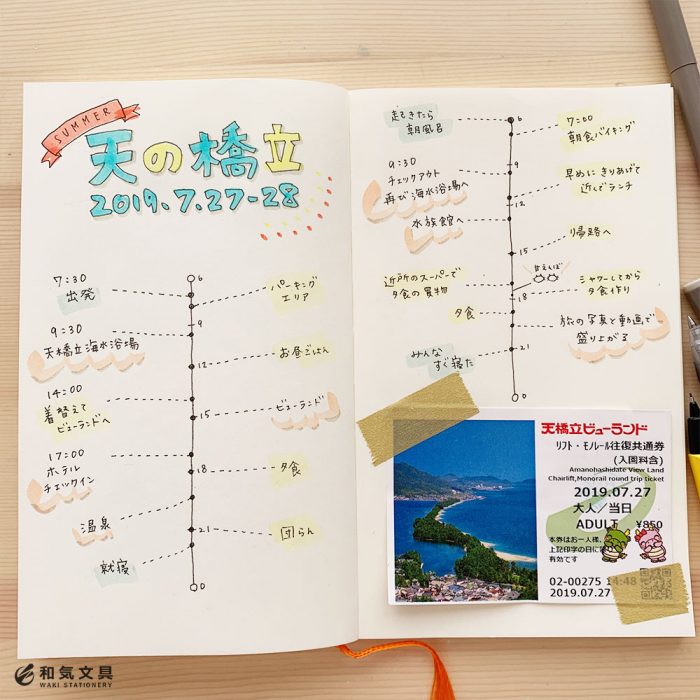 SUMMER
天の橋立
2019.7.27-28
7:30
出発
パーキング
エリア
9:30
天橋立海水浴場
お昼ごはん
14:00
着替えて
ビューランドへ
ビューランド
17:00
ホテル
チェックイン
夕食
温泉
団らん
就寝
6
9
12
15
18
21
0
起きたら
朝風呂
7:00
朝食バイキング
9:30
チェックアウト
再び海水浴場へ
早めにきりあげて
近くでランチ
水族館へ
帰路へ
近所のスーパーで
夕食の買物
甘えんぼ
シャワーしてから
夕食作り
夕食
旅の写真と動画で
盛り上がる
みんな
すぐ寝た
6
9
12
15
18
21
0
天橋立ビューランド
リフト・モノレール往復共通券
(入園料含)
Amanohashidate View Land
Chairlift,Monorail round trip ticket
2019.07.27
大人／当日
ADULT ¥850
本券はお一人様、
上記印字の日に
有効です
02-00275 14:48
2019.07.27
和気文具
WAKI STATIONERY